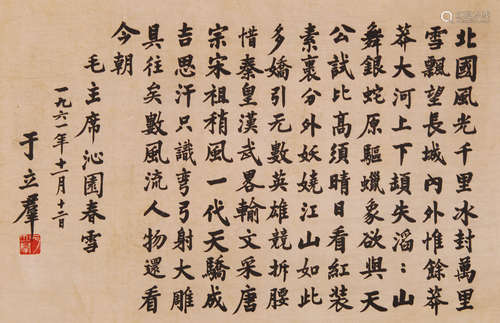 北國風光千里冰封萬里
雪飄望長城內外惟餘莽
莽大河上下頓失滔〻山
舞銀蛇原驅蠟象欲與天
公試比高須晴日看紅裝
素裹分外妖嬈江山如此
多嬌引无數英雄競折腰
惜秦皇漢武畧輸文采唐
宗宋祖稍風一代天驕成
吉思汗只識彎弓射大雕
具往矣數風流人物還看
今朝
毛主席沁園春雪
一九六一年十二月十二日
于立羣